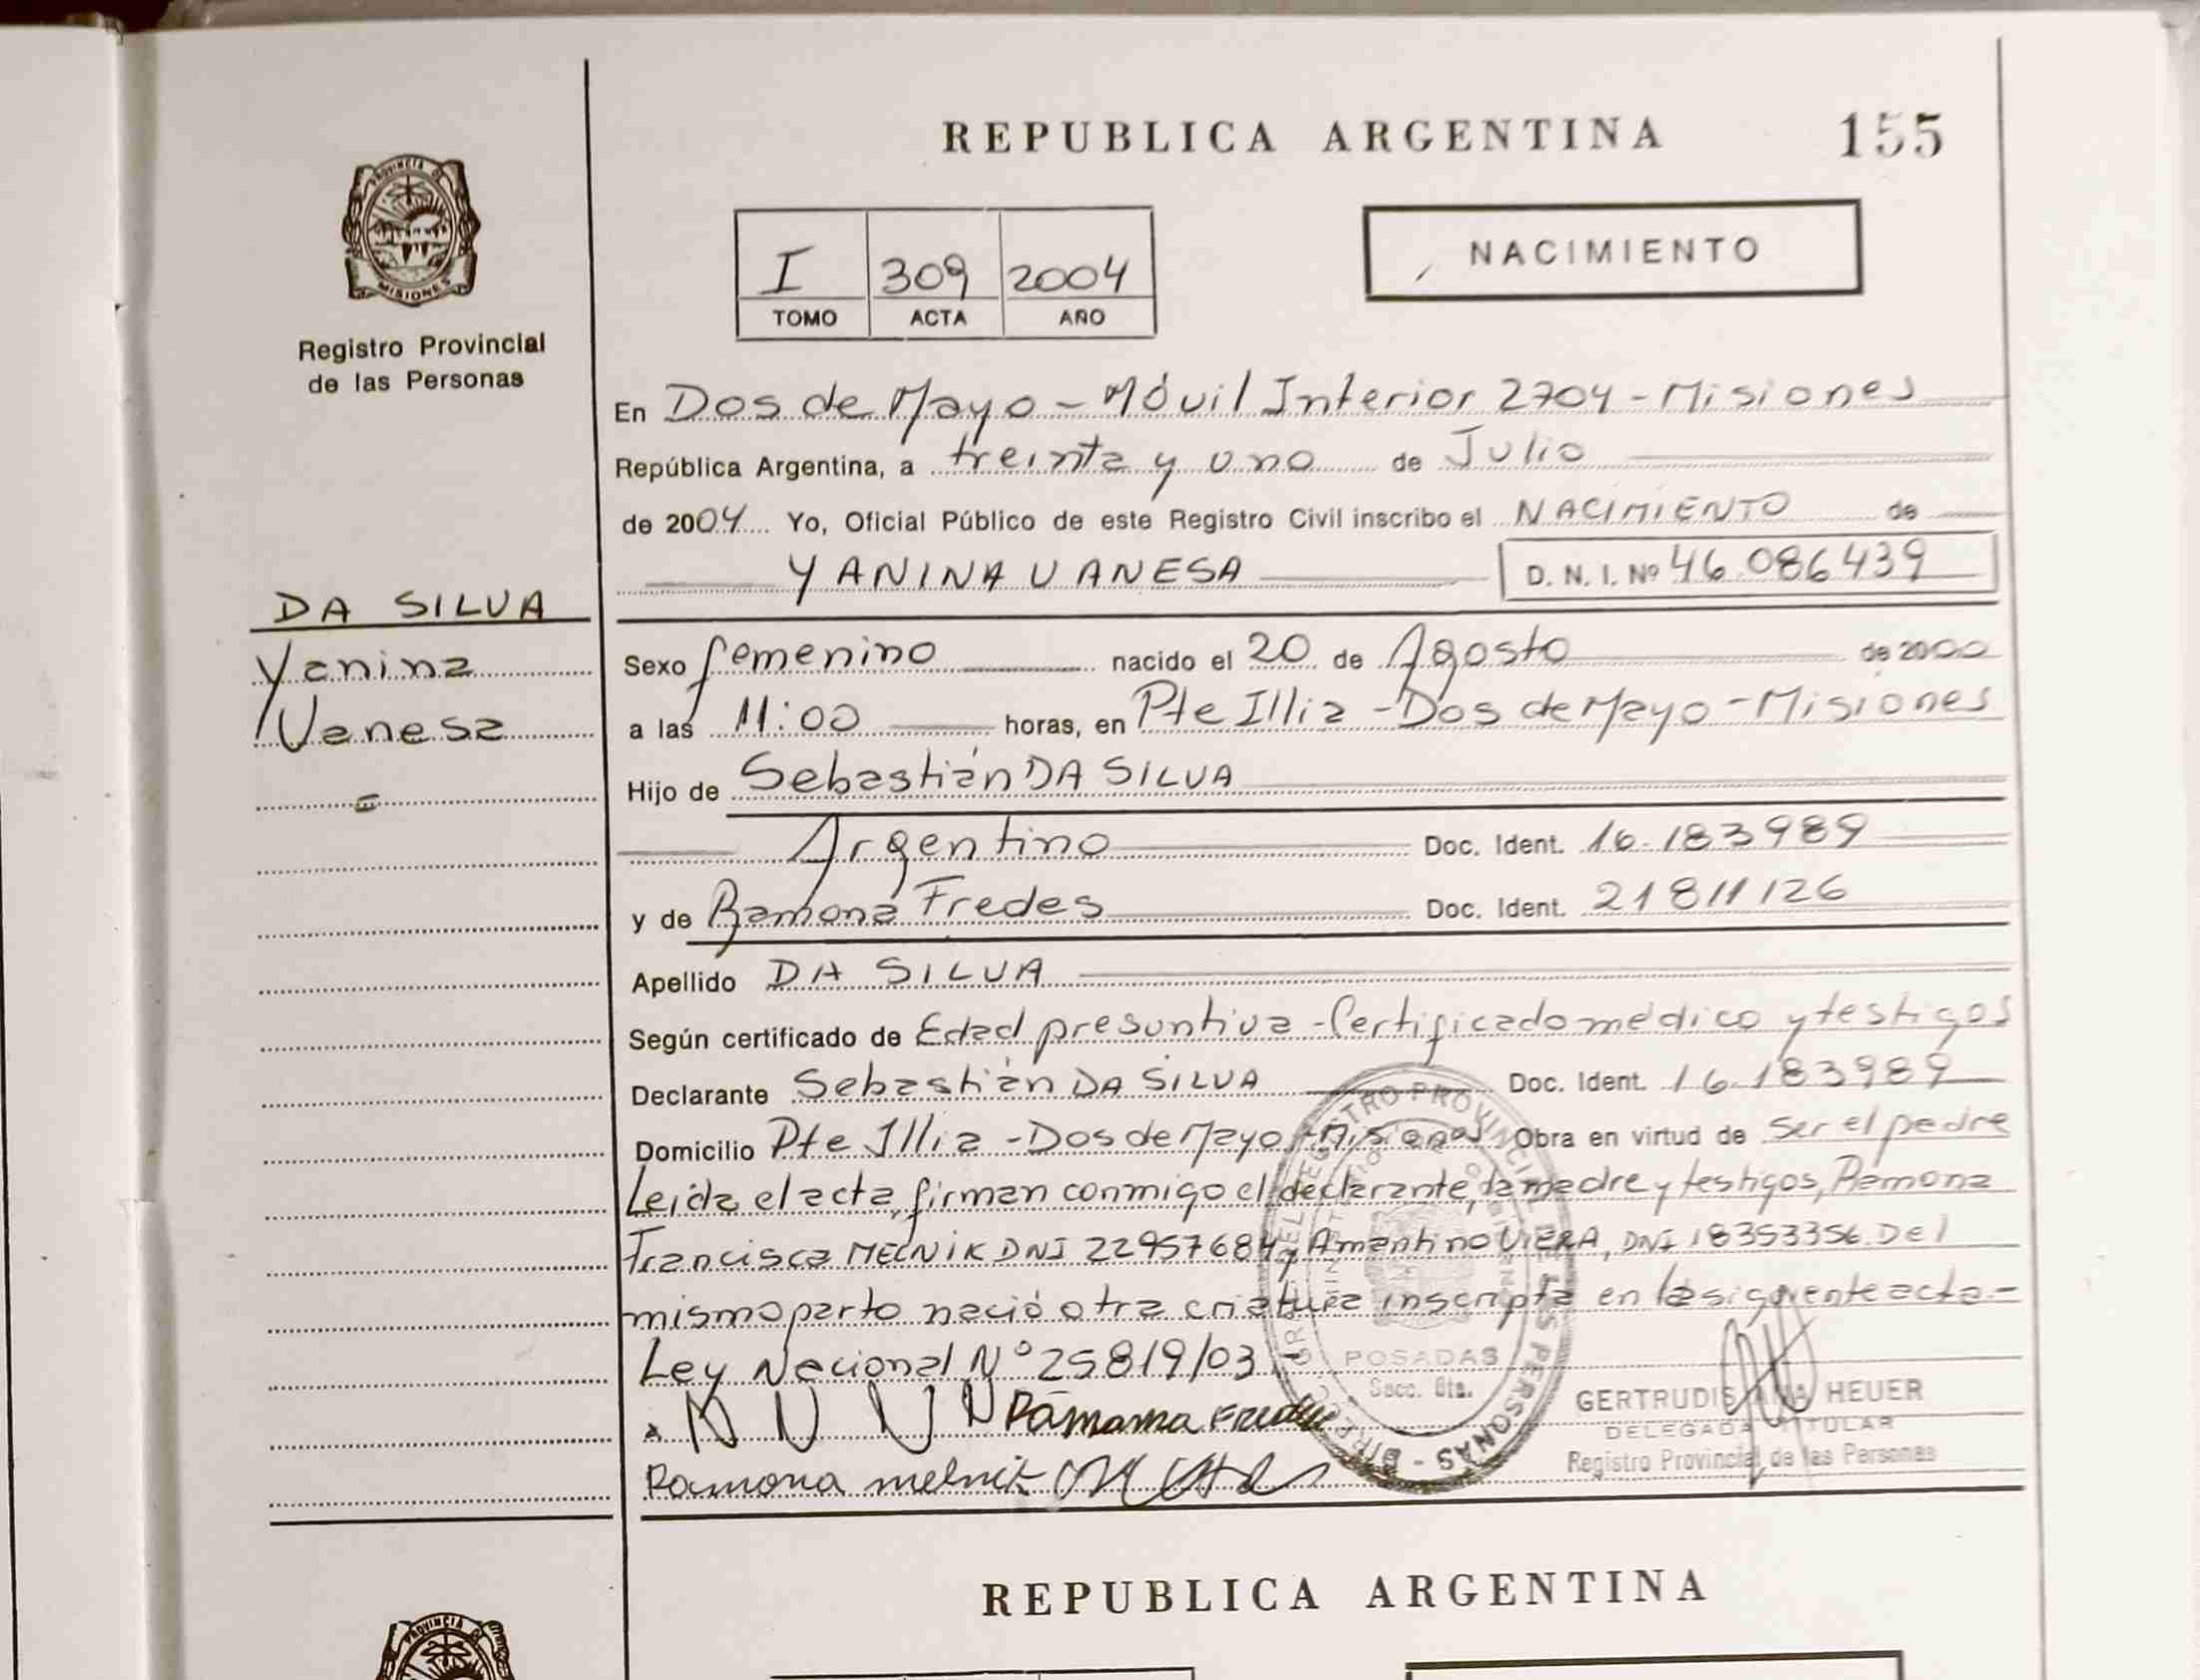 REPUBLICA ARGENTINA
155
PROVINCIA DE
MISIONES
Registro Provincial
de las Personas
I 309 2004
TOMO ACTA AÑO
NACIMIENTO
En Dos de Mayo - Móvil Interior 2704 - Misiones
República Argentina, a treinta y uno de Julio
de 2004 Yo, Oficial Público de este Registro Civil inscribo el NACIMIENTO de
YANINA VANESA D. N. I. Nº 46.086439
DA SILVA
Yanina
Vanesa
Sexo femenino nacido el 20 de Agosto de 2000
a las 11:00 horas, en Pte Illia - Dos de Mayo - Misiones
Hijo de Sebastián DA SILVA
Argentino Doc. Ident. 16.183989
y de Ramona Fredes Doc. Ident. 21811126
Apellido DA SILVA
Según certificado de Edad presuntiva - Certificado médico y testigos
Declarante Sebastián DA SILVA Doc. Ident. 16.183989
Domicilio Pte Illia - Dos de Mayo - Misiones Obra en virtud de ser el padre
Leida el acta, firman conmigo el declarante, la madre y testigos, Ramona
Francisca MELNIK DNI 22957684 y Amantino VIERA, DNI 18353356. Del
mismo parto nació otra criatura inscripta en la siguiente acta -
Ley Nacional Nº 25819/03
POSADAS
Secc. 6ta.
GERTRUDIS ANA HEUER
DELEGADA TITULAR
Registro Provincial de las Personas
Ramona melnik
REPUBLICA ARGENTINA
PROVINCIA